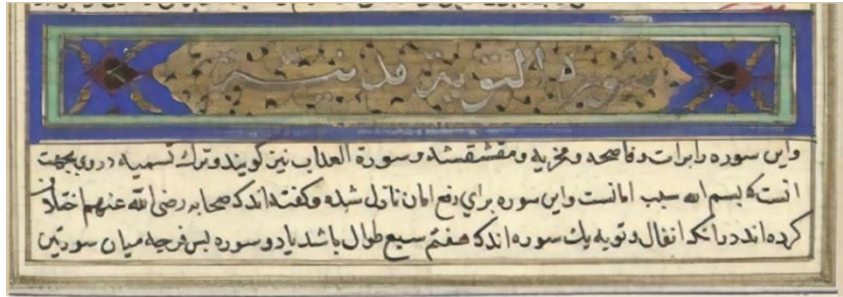 سورة التوبة مدنية
واین سوره را برات وفاضحه ومخزیه ومقشقشه وسورة العذاب نیز کویند وترك تسمیه در وی بجهت
انست که بسم الله سبب امانست واین سوره برای رفع امان نازل شده وکفته اند که صحابه رضی الله عنهم اختلاف
کرده اند در انکه انفال وتوبه یك سوره اند که هفتم سبع طوال باشد یا دو سوره پس فرجه میان سورتین